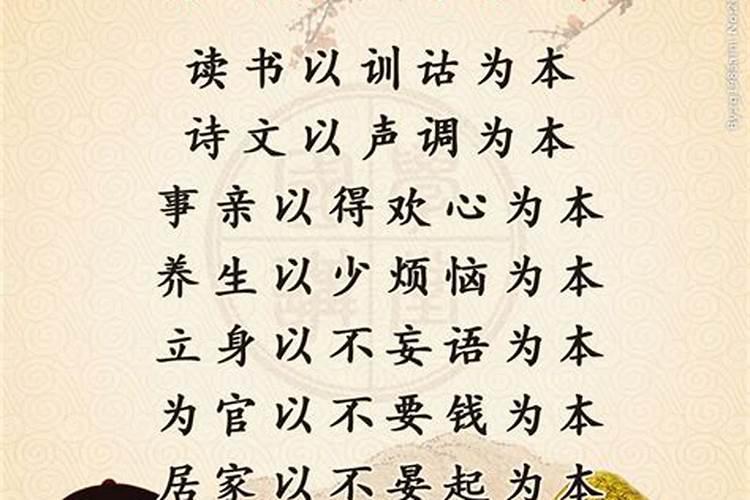 读书以训诂为本
诗文以声调为本
事亲以得欢心为本
养生以少烦恼为本
立身以不妄语为本
为官以不要钱为本
居家以不晏起为本